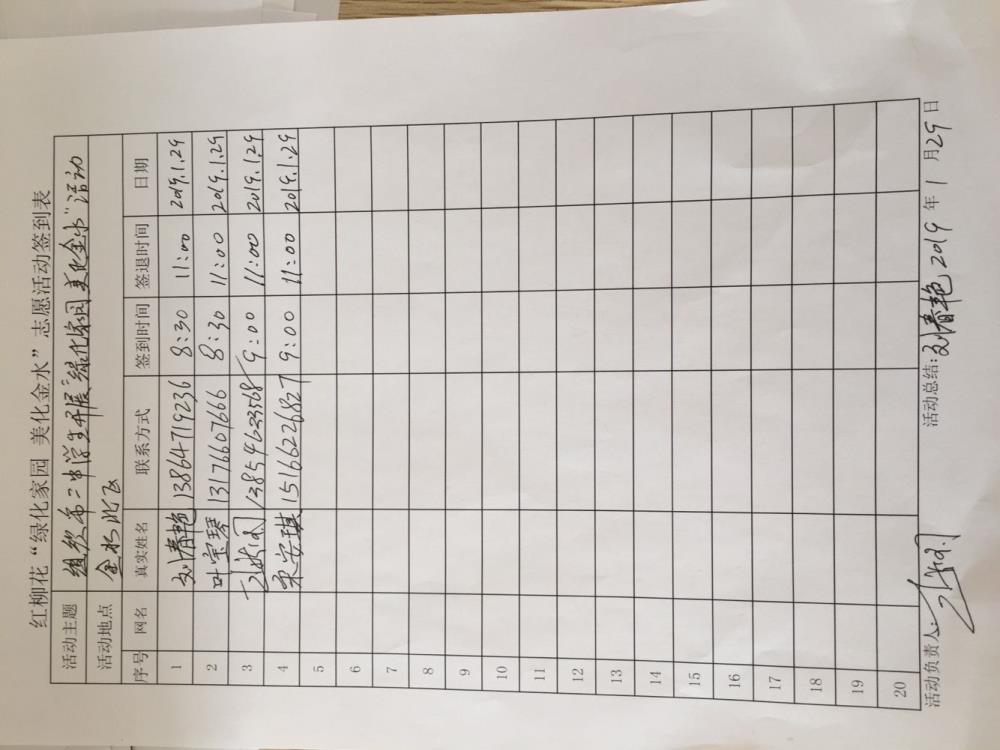 红柳花“绿化家园 美化金水”志愿活动签到表
活动主题 组织市二中学生开展“绿化家园 美化金水”活动
活动地点 金水北区
序号 网名 真实姓名 联系方式 签到时间 签退时间 日期
1 刘春艳 13864719236 8:30 11:00 2019.1.29
2 叶宝琴 13176607666 8:30 11:00 2019.1.29
3 13854623568 9:00 11:00 2019.1.29
4 宋安琪 15166226827 9:00 11:00 2019.1.29
5
6
7
8
9
10
11
12
13
14
15
16
17
18
19
20
活动负责人: 活动总结:刘春艳 2019 年 1 月 29 日